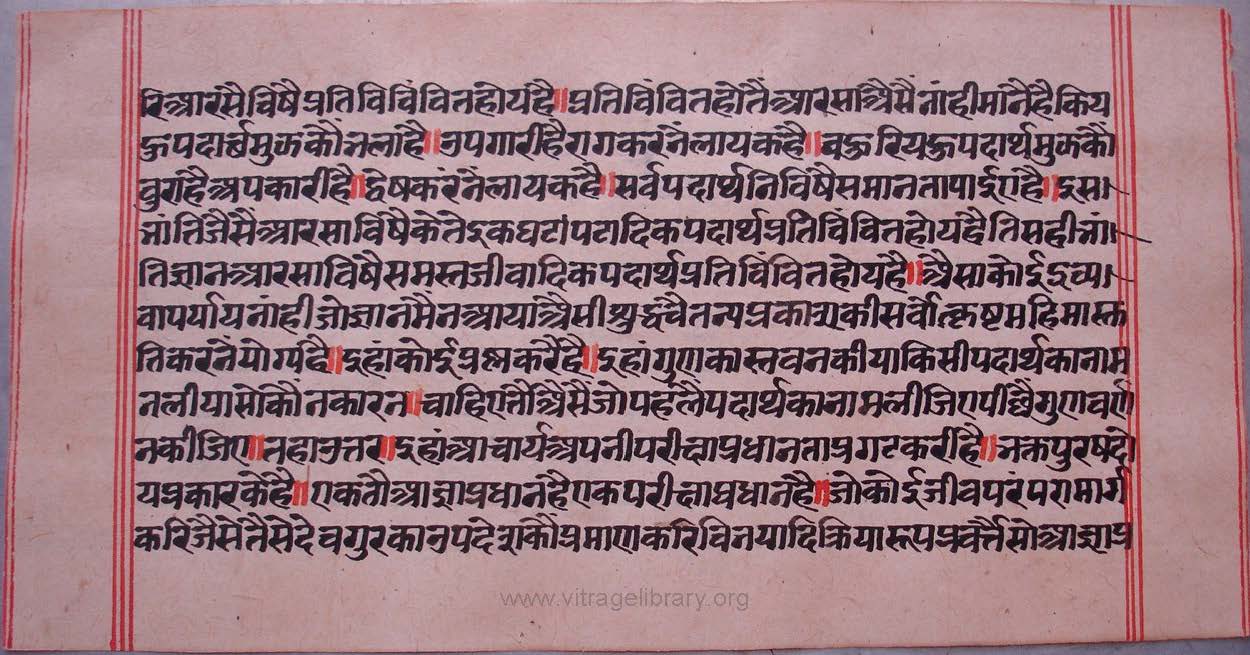 रि आरसै विषै प्रतिविंवित होय है॥ प्रतिविंवित होतैं आरसा अैसैं नांही मांनै है कि य
हु पदार्थ मुझकौं भला है॥ उपगारी है राग करनें लायक है॥ वहुरि यहु पदार्थ मुझकौं
वुरा है अपकारी है॥ द्वेष करनें लायक है॥ सर्व पदार्थनि विषै समानता पाईए है॥ इसा
भांति जैसै आरसा विषै केतेइक घटा पटादिक पदार्थ प्रतिविंवित होय है तिस ही भां
ति ज्ञान आरसा विषै समस्त जीवादिक पदार्थ प्रतिविंवित होय है॥ अैसा कोई द्रव्य
वा पर्याय नांही जो ज्ञान मै न आया अैसी शुद्ध चैतन्य प्रकाश की सर्वोत्कृष्ट महिमा स्तु
ति करनें योग्य है॥ इहां कोई प्रश्न करै है॥ इहां गुण का स्तवन कीया किसी पदार्थ का नाम
न लीया सो कौंन कारन॥ चाहिए तौ अैसै जो पहलै पदार्थ का नाम लीजिए पीछै गुण वर्ण
न कीजिए॥ तहा उत्तर॥ इहां आचार्य अपनी परीक्षाप्रधानता प्रगट करी है॥ भक्त पुरष दो
य प्रकार के है॥ एक तौ आज्ञाप्रधान है एक परीक्षाप्रधान है॥ जो कोई जीव परंपरा मार्ग
करि जैसे तैसे देव गुर का उपदेश कौ प्रमाण करि विनयादि क्रिया रूप प्रवर्त्तै सो आज्ञाप्र
www.vitragelibrary.org